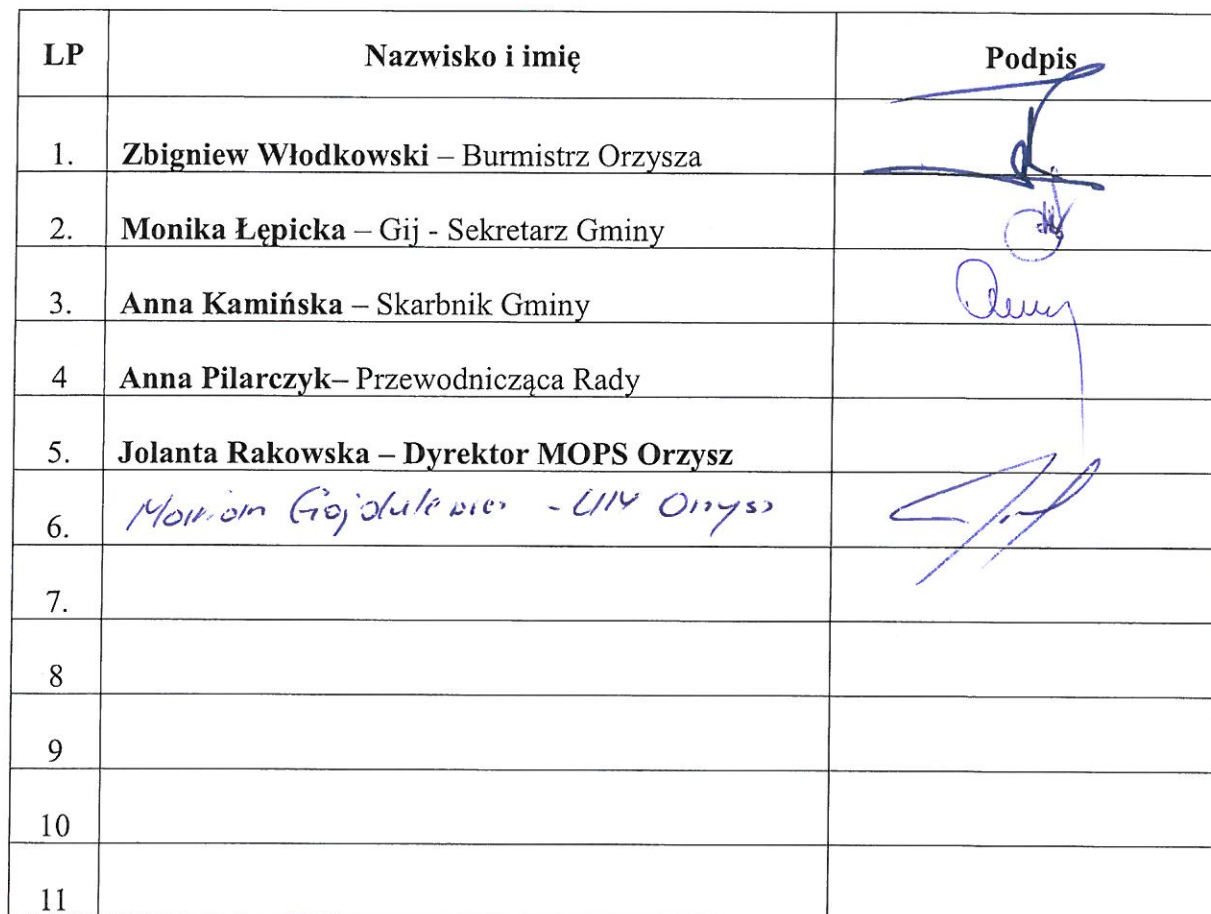 LP Nazwisko i imię Podpis
1. Zbigniew Włodkowski – Burmistrz Orzysza
2. Monika Łępicka – Gij - Sekretarz Gminy
3. Anna Kamińska – Skarbnik Gminy
4 Anna Pilarczyk– Przewodnicząca Rady
5. Jolanta Rakowska – Dyrektor MOPS Orzysz
6. Marian - UM Orzysz
7.
8
9
10
11